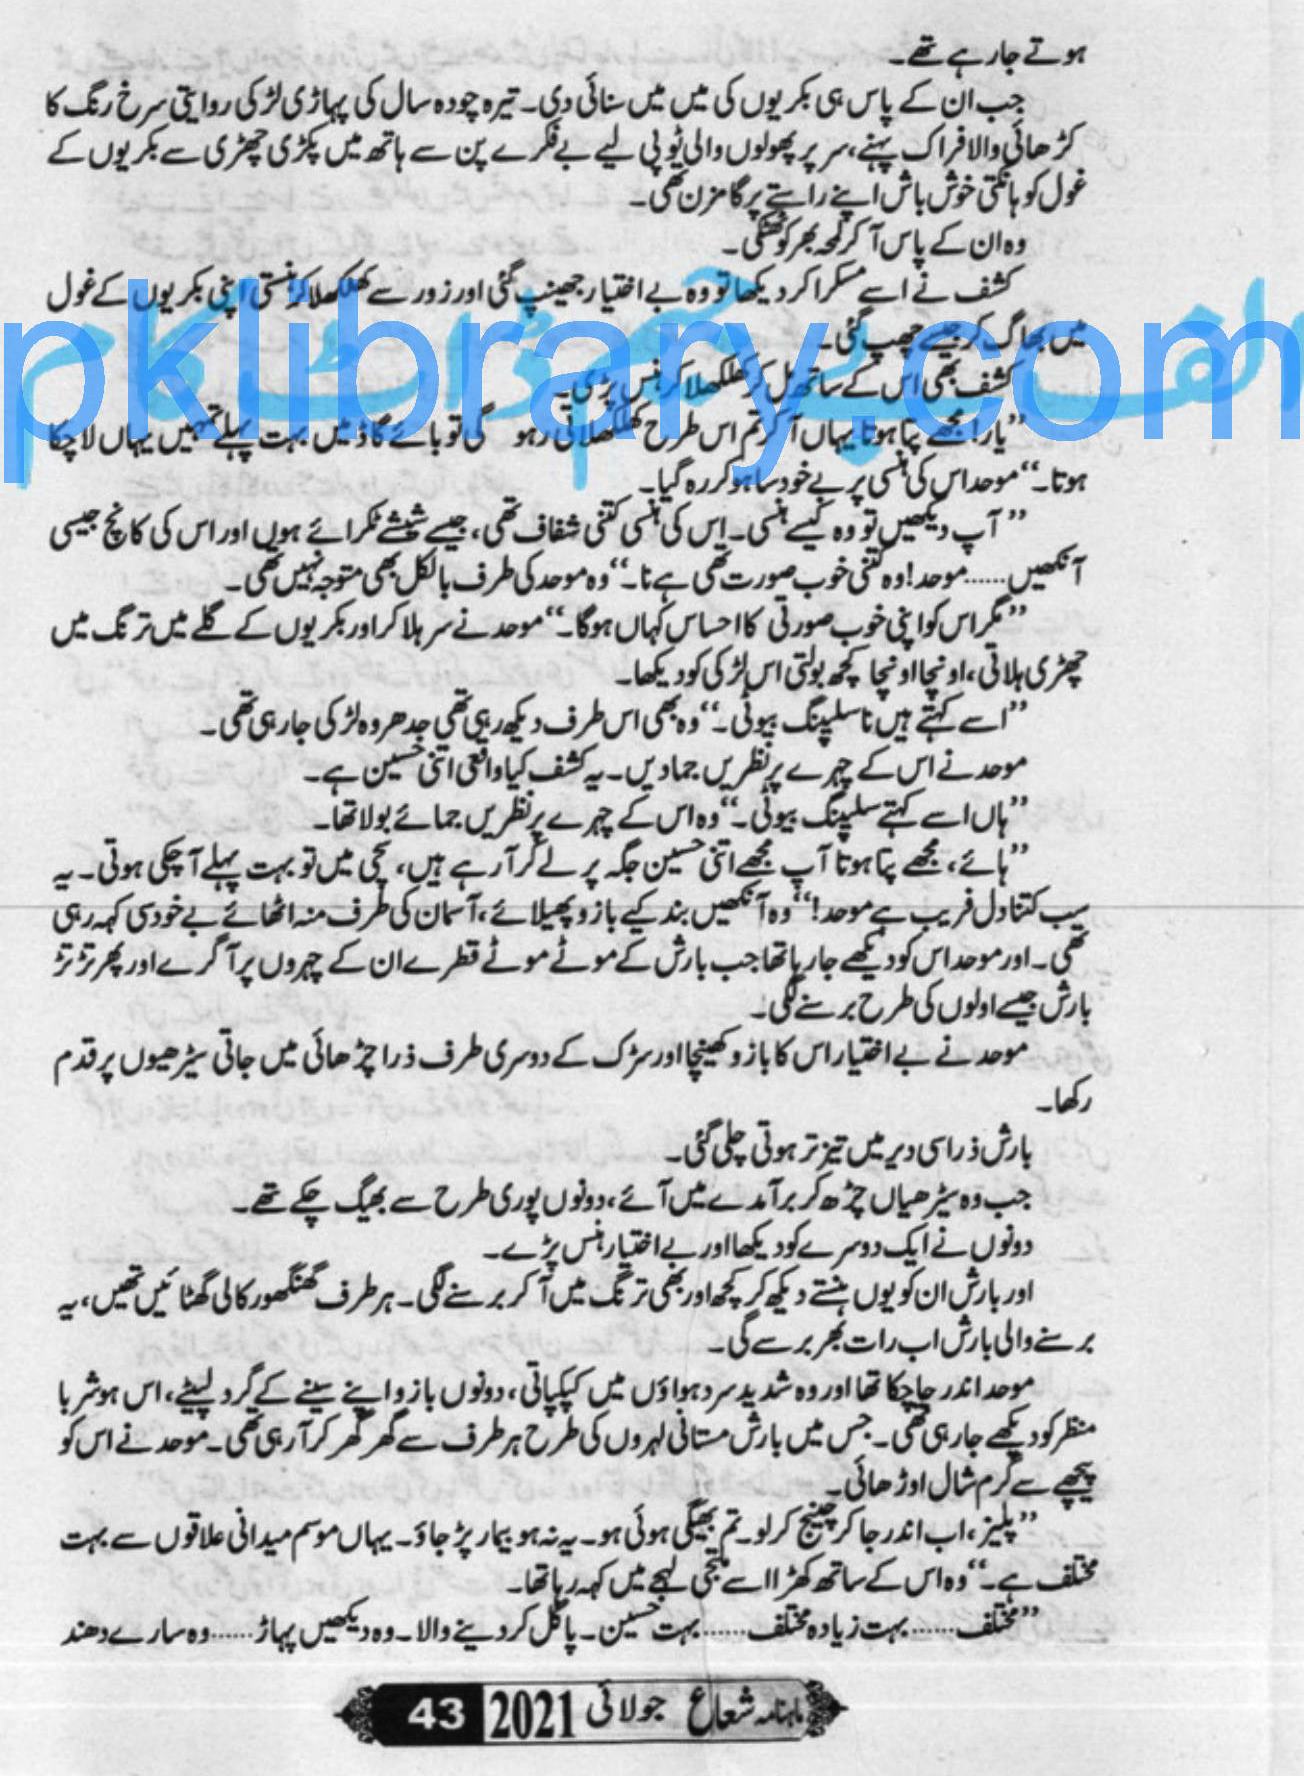 ہوتے جارہے تھے۔
جب ان کے پاس ہی بکریوں کی میں میں سنائی دی۔ تیرہ چودہ سال کی پہاڑی لڑکی روایتی سرخ رنگ کا
کڑھائی والا فراک پہنے، سر پر پھولوں والی ٹوپی لیے بے فکرے پن سے ہاتھ میں پکڑی چھڑی سے بکریوں کے
غول کو ہانکتی خوش باش اپنے راستے پر گامزن تھی۔
وہ ان کے پاس آ کر لمحہ بھر کو ٹھٹکی۔
کشف نے اسے مسکرا کر دیکھا تو وہ بے اختیار جھینپ گئی اور زور سے کھلکھلا کر ہنستی اپنی بکریوں کے غول
میں بھاگ کر جیسے چھپ گئی۔
کشف بھی اس کے ساتھ مل کر کھلکھلا کر ہنس پڑی۔
”یار! مجھے پتا ہوتا یہاں آ کر تم اس طرح کھلکھلاتی رہو گی تو بائے گاڈ میں بہت پہلے تمہیں یہاں لا چکا
ہوتا۔“ موحد اس کی ہنسی پر بے خود سا ہو کر رہ گیا۔
”آپ دیکھیں تو وہ کیسے ہنسی۔ اس کی ہنسی کتنی شفاف تھی، جیسے شیشے ٹکرائے ہوں اور اس کی کانچ جیسی
آنکھیں...... موحد! وہ کتنی خوب صورت تھی ہے نا۔“ وہ موحد کی طرف بالکل بھی متوجہ نہیں تھی۔
”مگر اس کو اپنی خوب صورتی کا احساس کہاں ہوگا۔“ موحد نے سر ہلا کر اور بکریوں کے گلے میں ترنگ میں
چھڑی ہلاتی، اونچا اونچا کچھ بولتی اس لڑکی کو دیکھا۔
”اسے کہتے ہیں نا سلیپنگ بیوٹی۔“ وہ بھی اس طرف دیکھ رہی تھی جدھر وہ لڑکی جارہی تھی۔
موحد نے اس کے چہرے پر نظریں جمادیں۔ یہ کشف کیا واقعی اتنی حسین ہے۔
”ہاں اسے کہتے سلیپنگ بیوٹی۔“ وہ اس کے چہرے پر نظریں جمائے بولا تھا۔
”ہائے، مجھے پتا ہوتا آپ مجھے اتنی حسین جگہ پر لے کر آرہے ہیں، سچی میں تو بہت پہلے آ چکی ہوتی۔ یہ
سب کتنا دل فریب ہے موحد!“ وہ آنکھیں بند کیے بازو پھیلائے، آسمان کی طرف منہ اٹھائے بے خود سی کہہ رہی
تھی۔ اور موحد اس کو دیکھے جارہا تھا جب بارش کے موٹے موٹے قطرے ان کے چہروں پر آ گرے اور پھر تڑ تڑ
بارش جیسے اولوں کی طرح برسنے لگی۔
موحد نے بے اختیار اس کا بازو کھینچا اور سڑک کے دوسری طرف ذرا چڑھائی میں جاتی سیڑھیوں پر قدم
رکھا۔
بارش ذرا سی دیر میں تیز تر ہوتی چلی گئی۔
جب وہ سیڑھیاں چڑھ کر برآمدے میں آئے، دونوں پوری طرح سے بھیگ چکے تھے۔
دونوں نے ایک دوسرے کو دیکھا اور بے اختیار ہنس پڑے۔
اور بارش ان کو یوں ہنستے دیکھ کر کچھ اور بھی ترنگ میں آ کر برسنے لگی۔ ہر طرف گھنگھور کالی گھٹائیں تھیں، یہ
برسنے والی بارش اب رات بھر برسے گی۔
موحد اندر جاچکا تھا اور وہ شدید سرد ہواؤں میں کپکپاتی، دونوں بازو اپنے سینے کے گرد لپیٹے، اس ہوشربا
منظر کو دیکھے جارہی تھی۔ جس میں بارش مستانی لہروں کی طرح ہر طرف سے گھر گھر کر آرہی تھی۔ موحد نے اس کو
پیچھے سے گرم شال اوڑھائی۔
”پلیز، اب اندر جا کر چینج کر لو۔ تم بھیگی ہوئی ہو۔ یہ نہ ہو بیمار پڑ جاؤ۔ یہاں موسم میدانی علاقوں سے بہت
مختلف ہے۔“ وہ اس کے ساتھ کھڑا اسے ملتجی لہجے میں کہہ رہا تھا۔
”مختلف...... بہت زیادہ مختلف...... بہت حسین۔ پاگل کر دینے والا۔ وہ دیکھیں پہاڑ...... وہ سارے دھند
ماہنامہ شعاع جولائی 2021 43
pklibrary.com